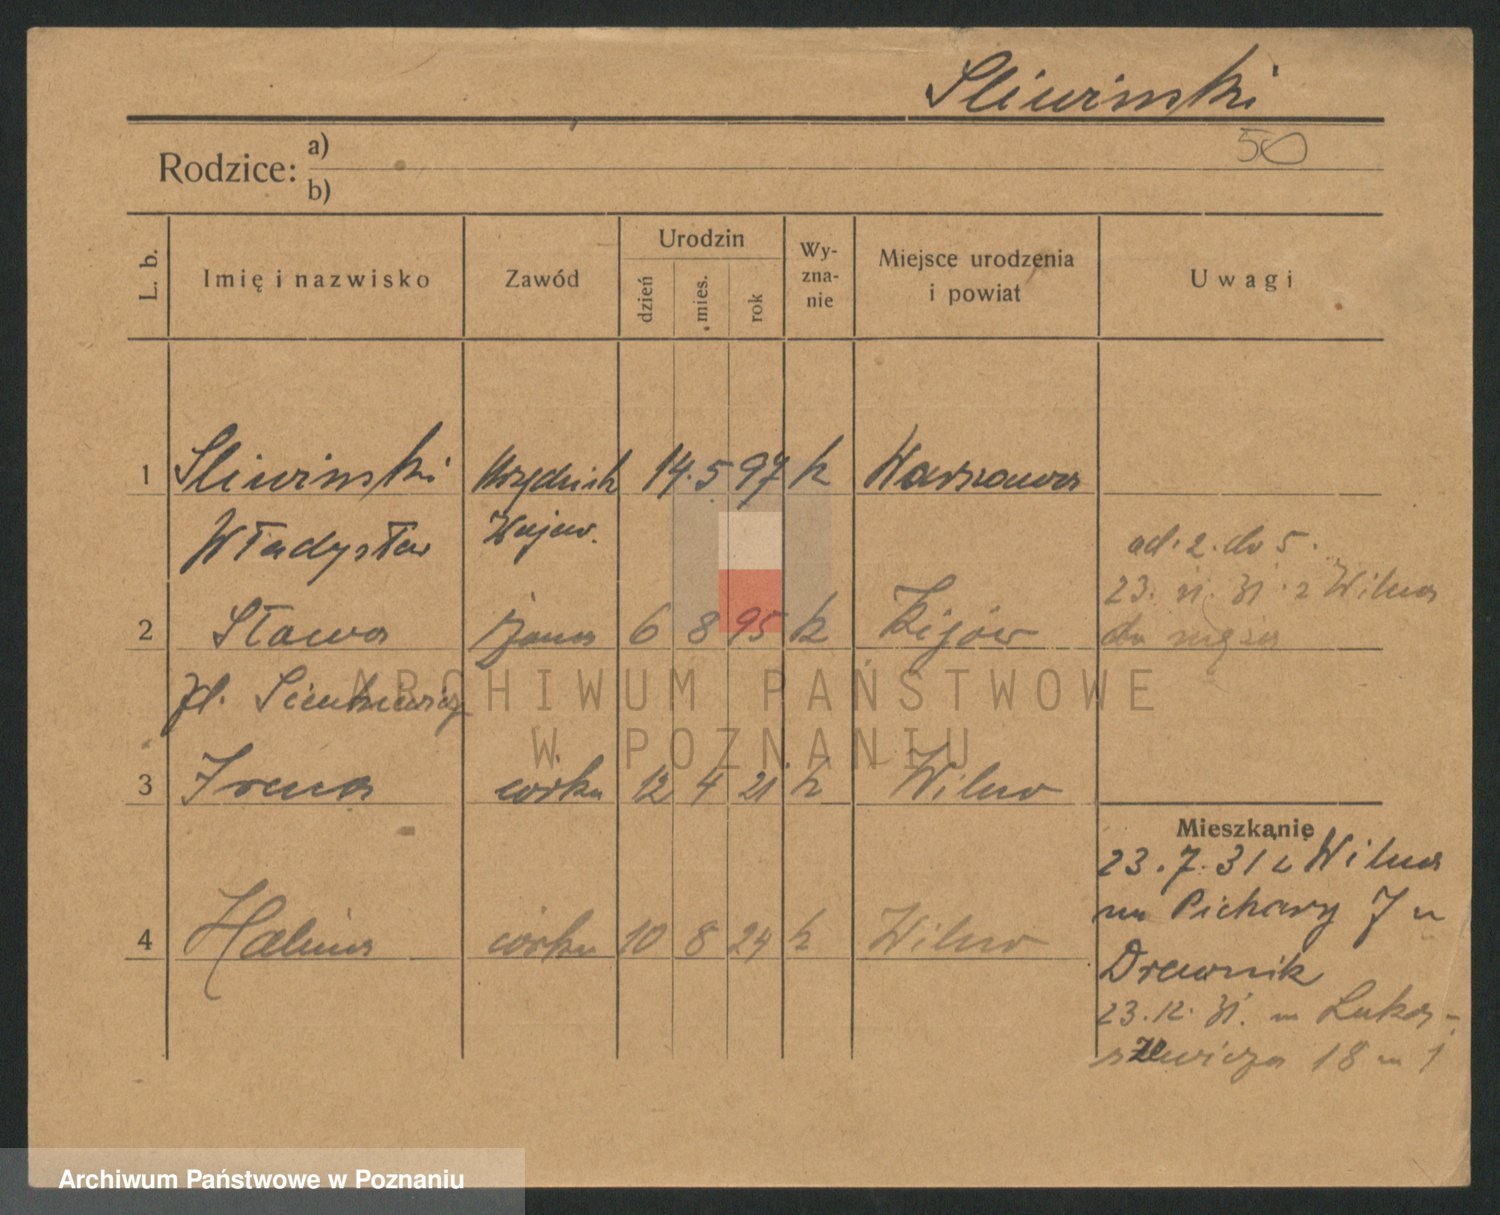 Sliwinski
50
Rodzice: a)
b)
L. b.
Imię i nazwisko
Zawód
Urodzin
dzień
mies.
rok
Wy-
zna-
nie
Miejsce urodzenia
i powiat
Uwagi
1 Sliwinski Urzędnik 14. 5 97 k Warszawa
Władysław Wojew.
od. 2. do 5.
2 Sława żona 6 8 95 k Kijów
23. 11. 31. z Wilna
do męża
zd. Sienkiewicz
ARCHIWUM PAŃSTWOWE
W POZNANIU
3 Irena córka 12 4 21 k Wilno
Mieszkanie
23. 7. 31 z Wilna
na Pichary 7 u
4 Halina córka 10 8 24 k Wilno
Drewnik
23. 12. 31. Łuka-
szewicza 18 m 1
Archiwum Państwowe w Poznaniu